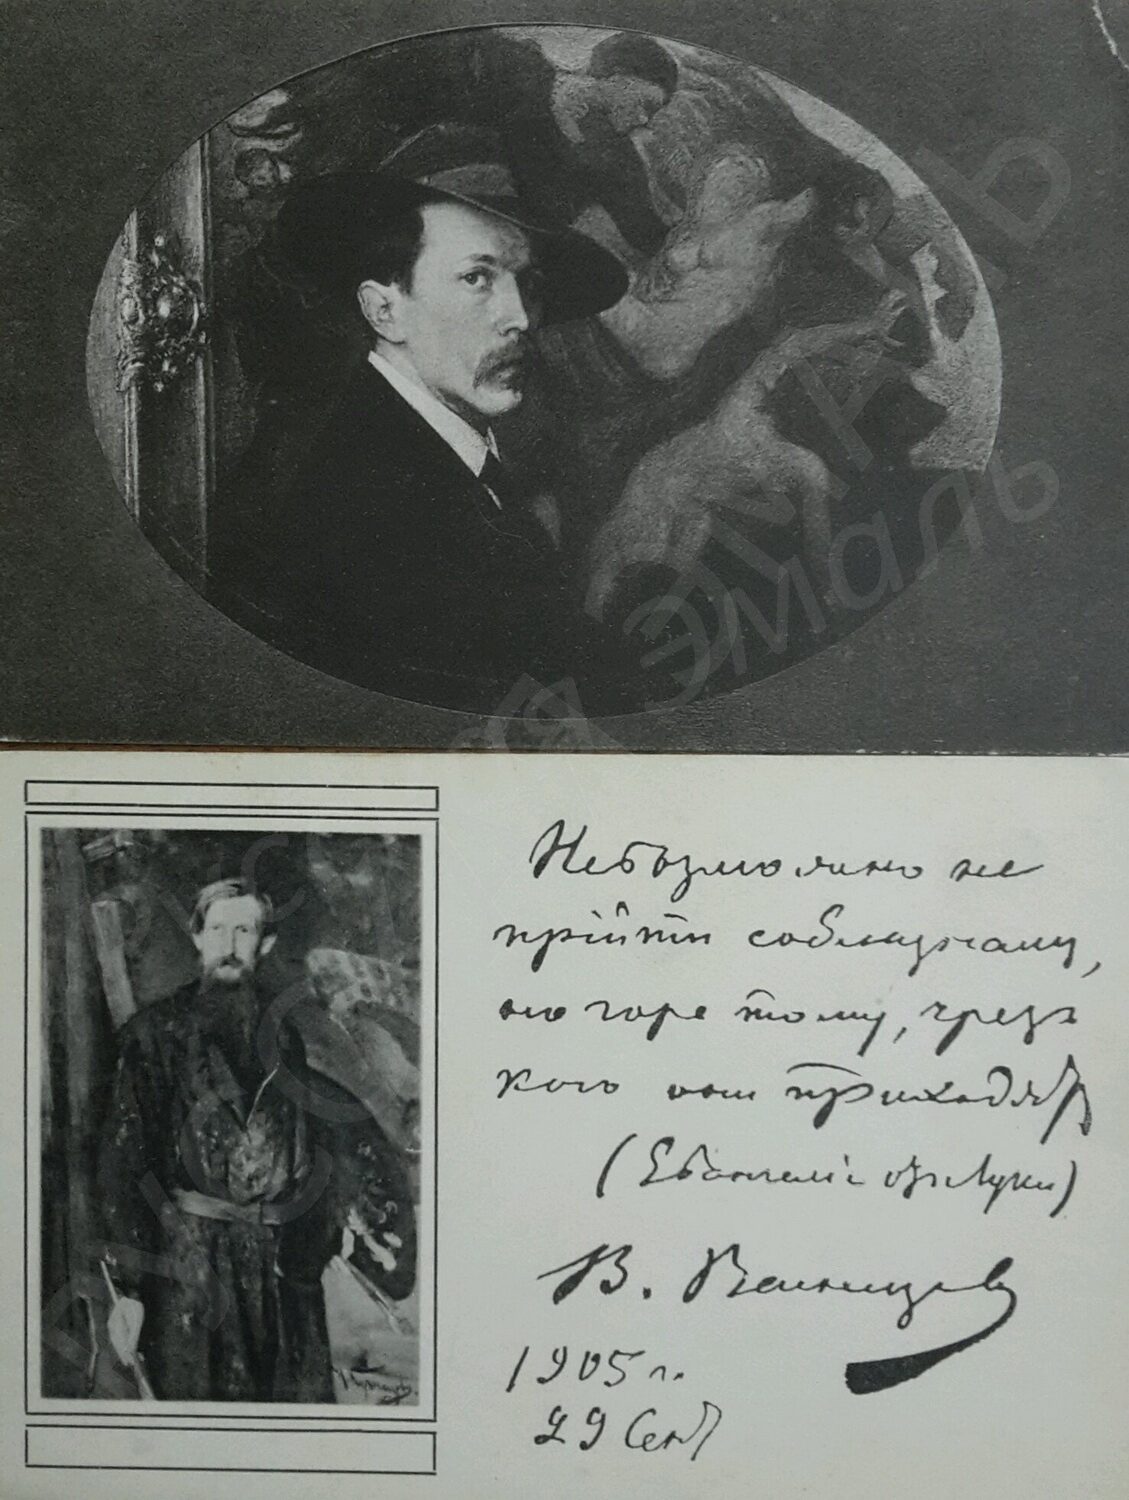 Невозможно не
прiйти соблазнамъ,
но горе тому, чрезъ
кого они приходятъ
(Евангелiе отъ Луки)
В. Васнецов
1905 г.
29 Сент
Русская эмаль
ЭМАЛЬ